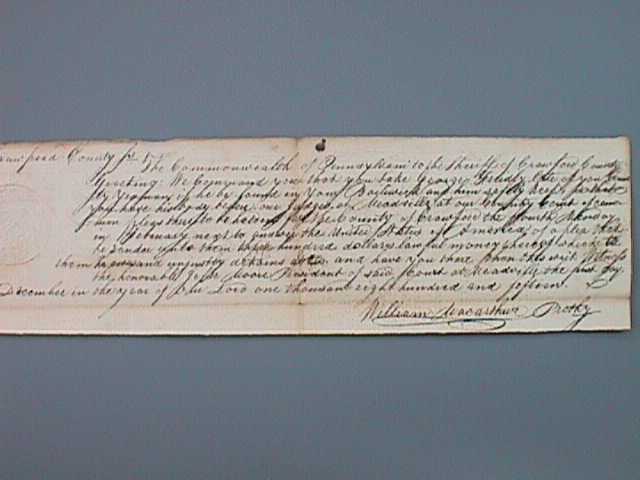 rawford County ss
The Commonwealth of Pennsylvania to the Sheriff of Crawford County
Greeting: We Command you that you take George late of your County
Yeoman if he be found in your Bailiwick and him safely keep so that
you have his body before our Judges at Meadville at our County Court of com
mon pleas there to be holden for the County of Crawford the fourth Monday
in February next to answer the United States of America of a plea that
he render unto them three hundred dollars lawful money which he
them and unjustly detains and have you there then this writ Witness
the honorable Jesse Moore President of said Court at Meadville the first day
December in the year of Our Lord one thousand eight hundred and fifteen
William Macarthur Prothy